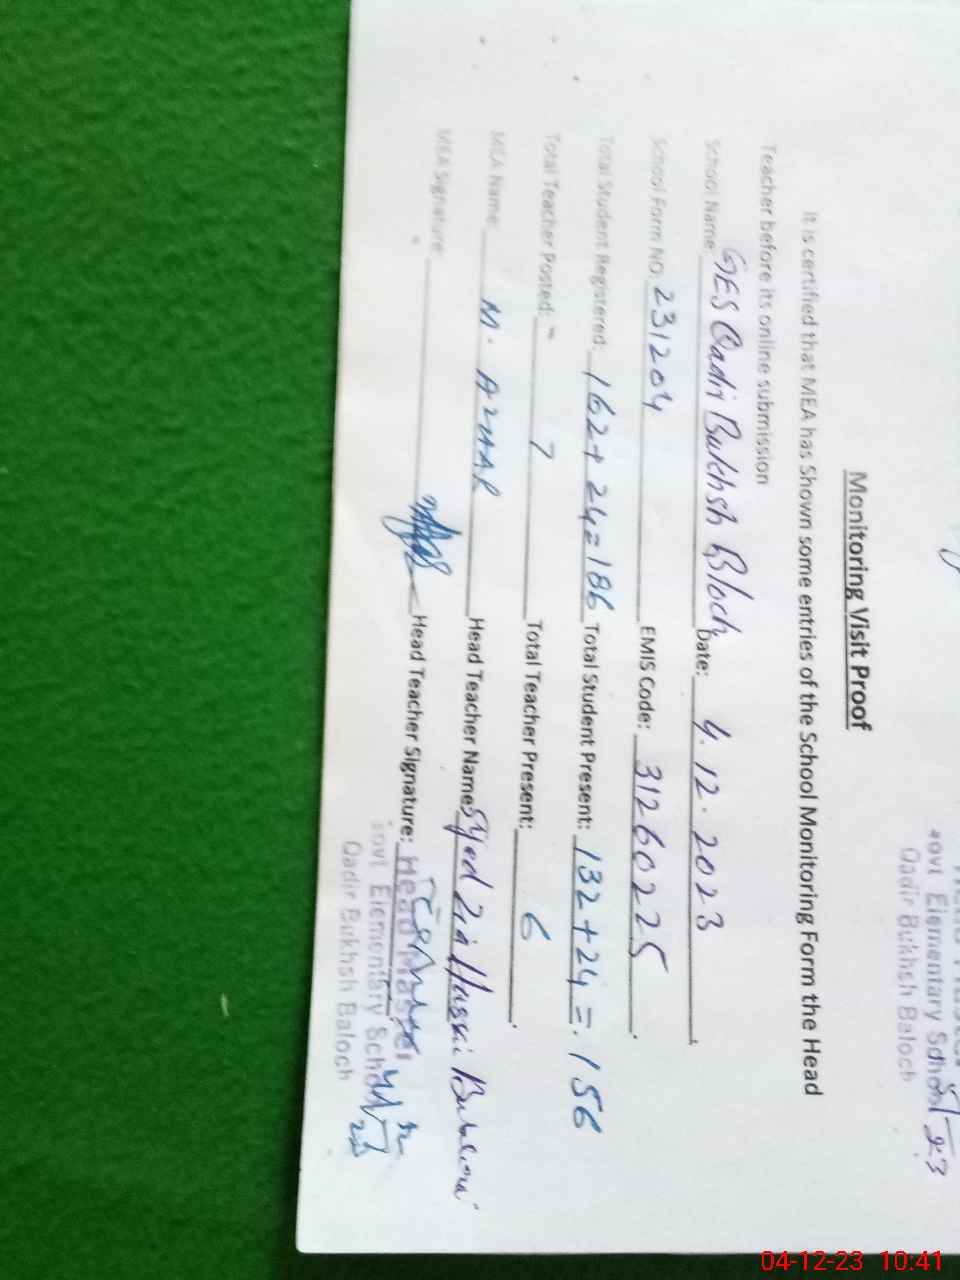 Monitoring Visit Proof
It is certified that MEA has Shown some entries of the School Monitoring Form the Head
Teacher before its online submission
School Name: GES Qadir Bukhsh Bloch Date: 4.12.2023
School Form NO: 231204 EMIS Code: 31260225
Total Student Registered: 162+24=186 Total Student Present: 132+24=156
Total Teacher Posted: 7 Total Teacher Present: 6
MEA Name: M. AZHAR Head Teacher Name: Syed Zia
MEA Signature: Head Teacher Signature:
Head Master
Govt Elementary School
Qadir Bukhsh Baloch
Govt Elementary School
Qadir Bukhsh Baloch
23
04-12-23 10:41